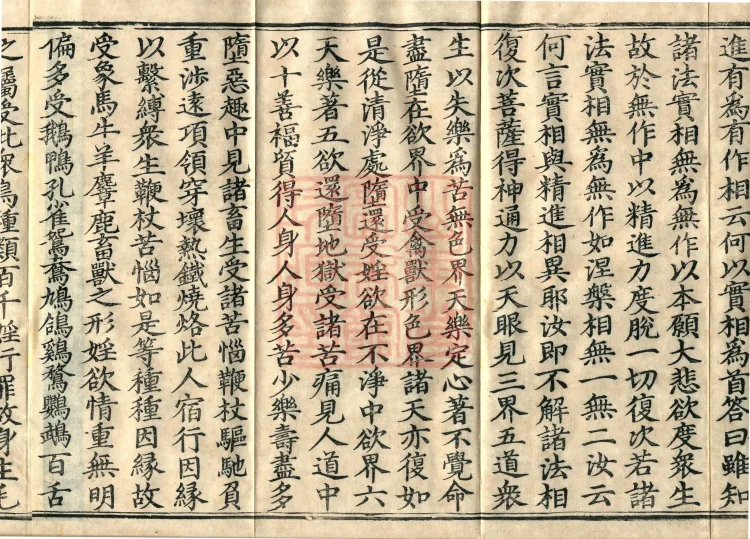 進有為有作相云何以實相為首答曰雖知
諸法實相無為無作以本願大悲欲度衆生
故於無作中以精進力度脫一切復次若諸
法實相無為無作如涅槃相無一無二汝云
何言實相與精進相異耶汝即不解諸法相
復次菩薩得神通力以天眼見三界五道衆
生以失樂為苦無色界天樂定心著不覺命
盡墮在欲界中受禽獸形色界諸天亦復如
是從清淨處墮還受婬欲在不淨中欲界六
天樂著五欲還墮地獄受諸苦痛見人道中
以十善福貿得人身人身多苦少樂壽盡多
墮惡趣中見諸畜生受諸苦惱鞭杖驅馳負
重涉遠項領穿壞熱鐵燒烙此人宿行因緣
以繫縛衆生鞭杖苦惱如是等種種因緣故
受象馬牛羊麞鹿畜獸之形婬欲情重無明
偏多受鵝鴨孔雀鴛鴦鳩鴿鷄鶩鸚鵡百舌
之屬受此衆鳥種類百千婬行罪故身生毛